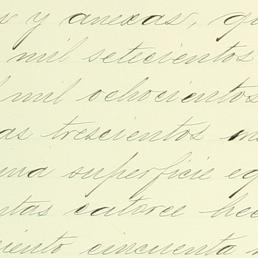 y anexas,
mil setecientos
mil ochocientos
trescientos
superficie
catorce
cincuenta